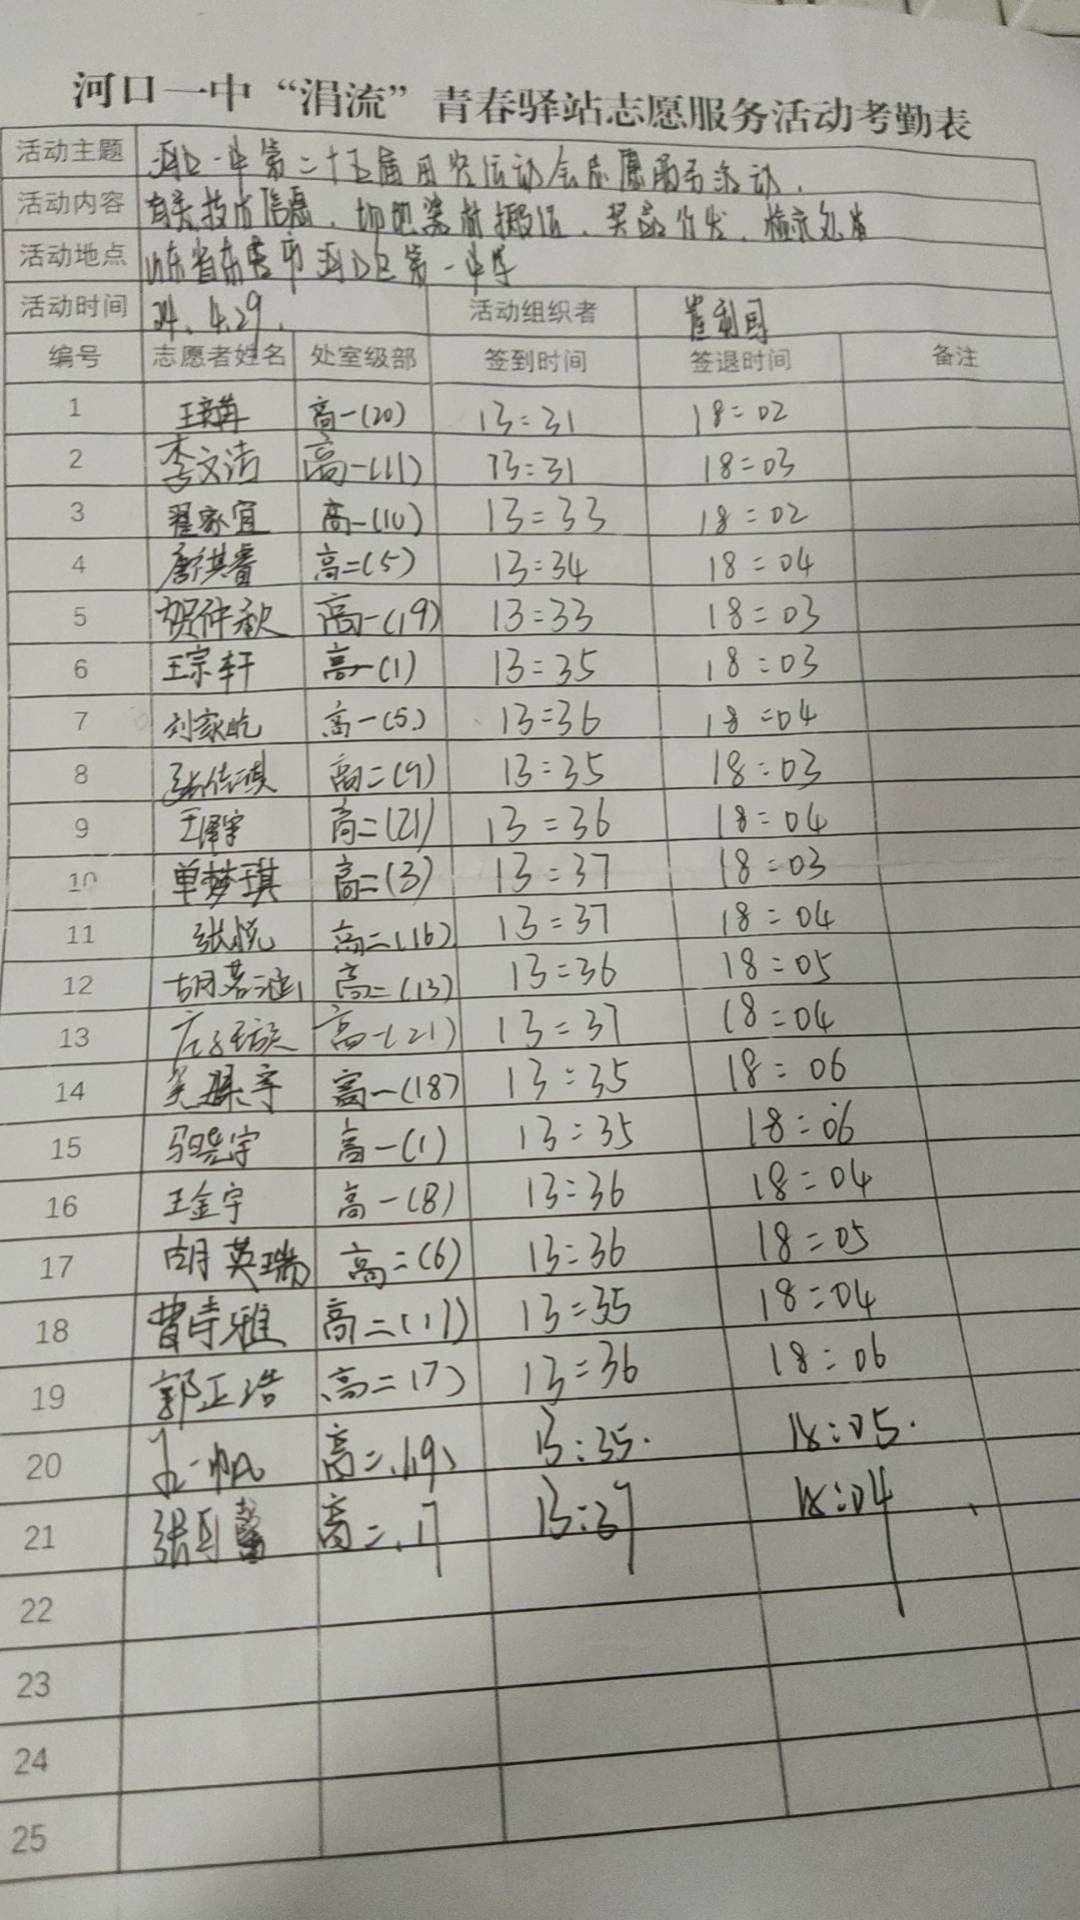 河口一中“涓流”青春驿站志愿服务活动考勤表
活动主题 河口一中第二十五届田径运动会志愿服务活动.
活动内容 技术信息、场地器材搬运、奖品分发、检录处
活动地点 山东省东营市河口区第一中学
活动时间 24.4.29. 活动组织者
编号 志愿者姓名 处室级部 签到时间 签退时间 备注
1 高一(20) 13:31 18:02
2 李文洁 高一(11) 13:31 18:03
3 翟家宜 高一(10) 13:33 18:02
4 唐祺睿 高二(5) 13:34 18:04
5 贺仲秋 高一(19) 13:33 18:03
6 王宗轩 高一(1) 13:35 18:03
7 刘家屹 高一(5) 13:36 18:04
8 高二(9) 13:35 18:03
9 王泽宇 高二(21) 13:36 18:04
10 单梦琪 高二(3) 13:37 18:03
11 张悦 高二(16) 13:37 18:04
12 胡若涵 高二(13) 13:36 18:05
13 高一(21) 13:37 18:04
14 高一(18) 13:35 18:06
15 马晓宇 高一(1) 13:35 18:06
16 王金宇 高一(8) 13:36 18:04
17 胡英瑞 高二(6) 13:36 18:05
18 曹诗雅 高二(11) 13:35 18:04
19 郭正浩 高二(7) 13:36 18:06
20 高二.(19) 13:35. 18:05.
21 高二.17 13:37 18:04
22
23
24
25